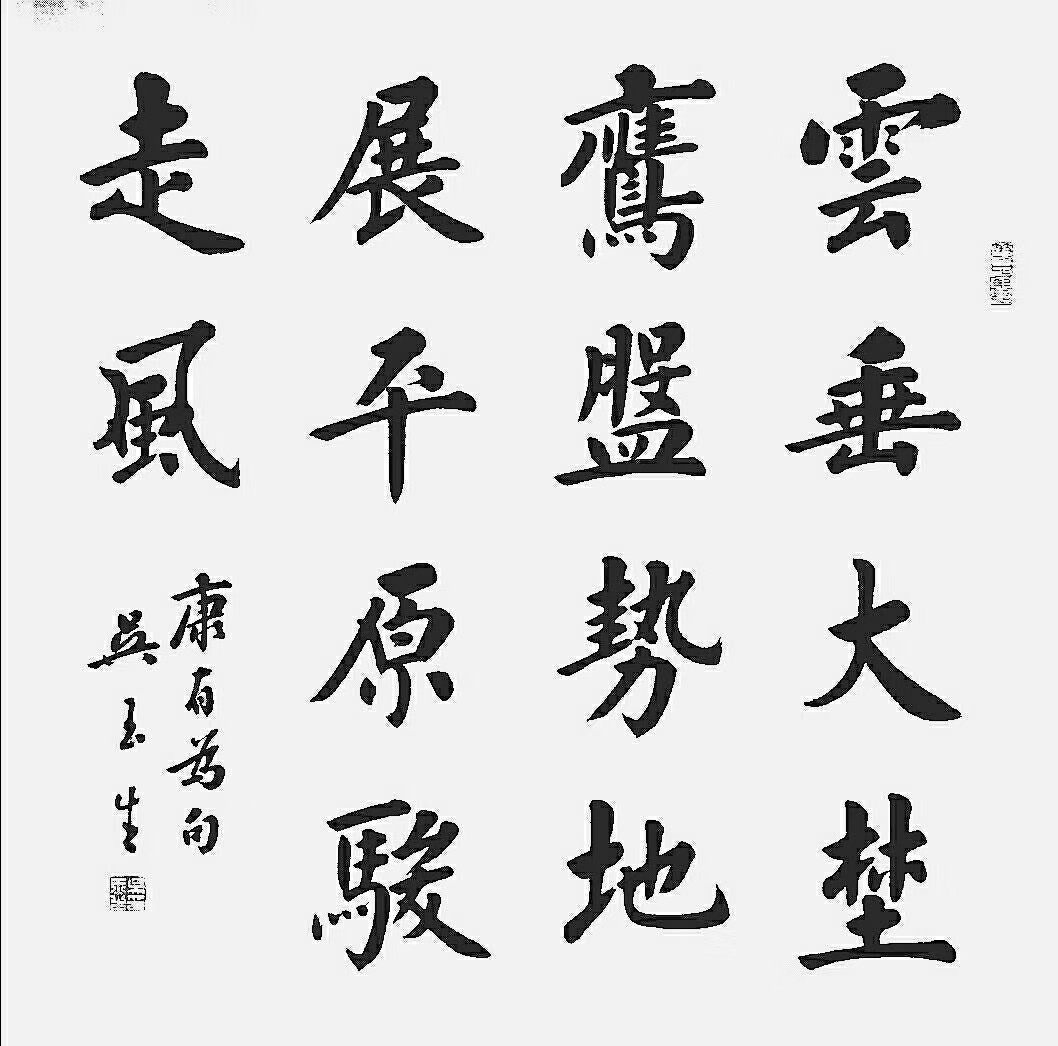 雲垂大埜
鷹盤勢地
展平原駿
走風
康有為句
吳玉生